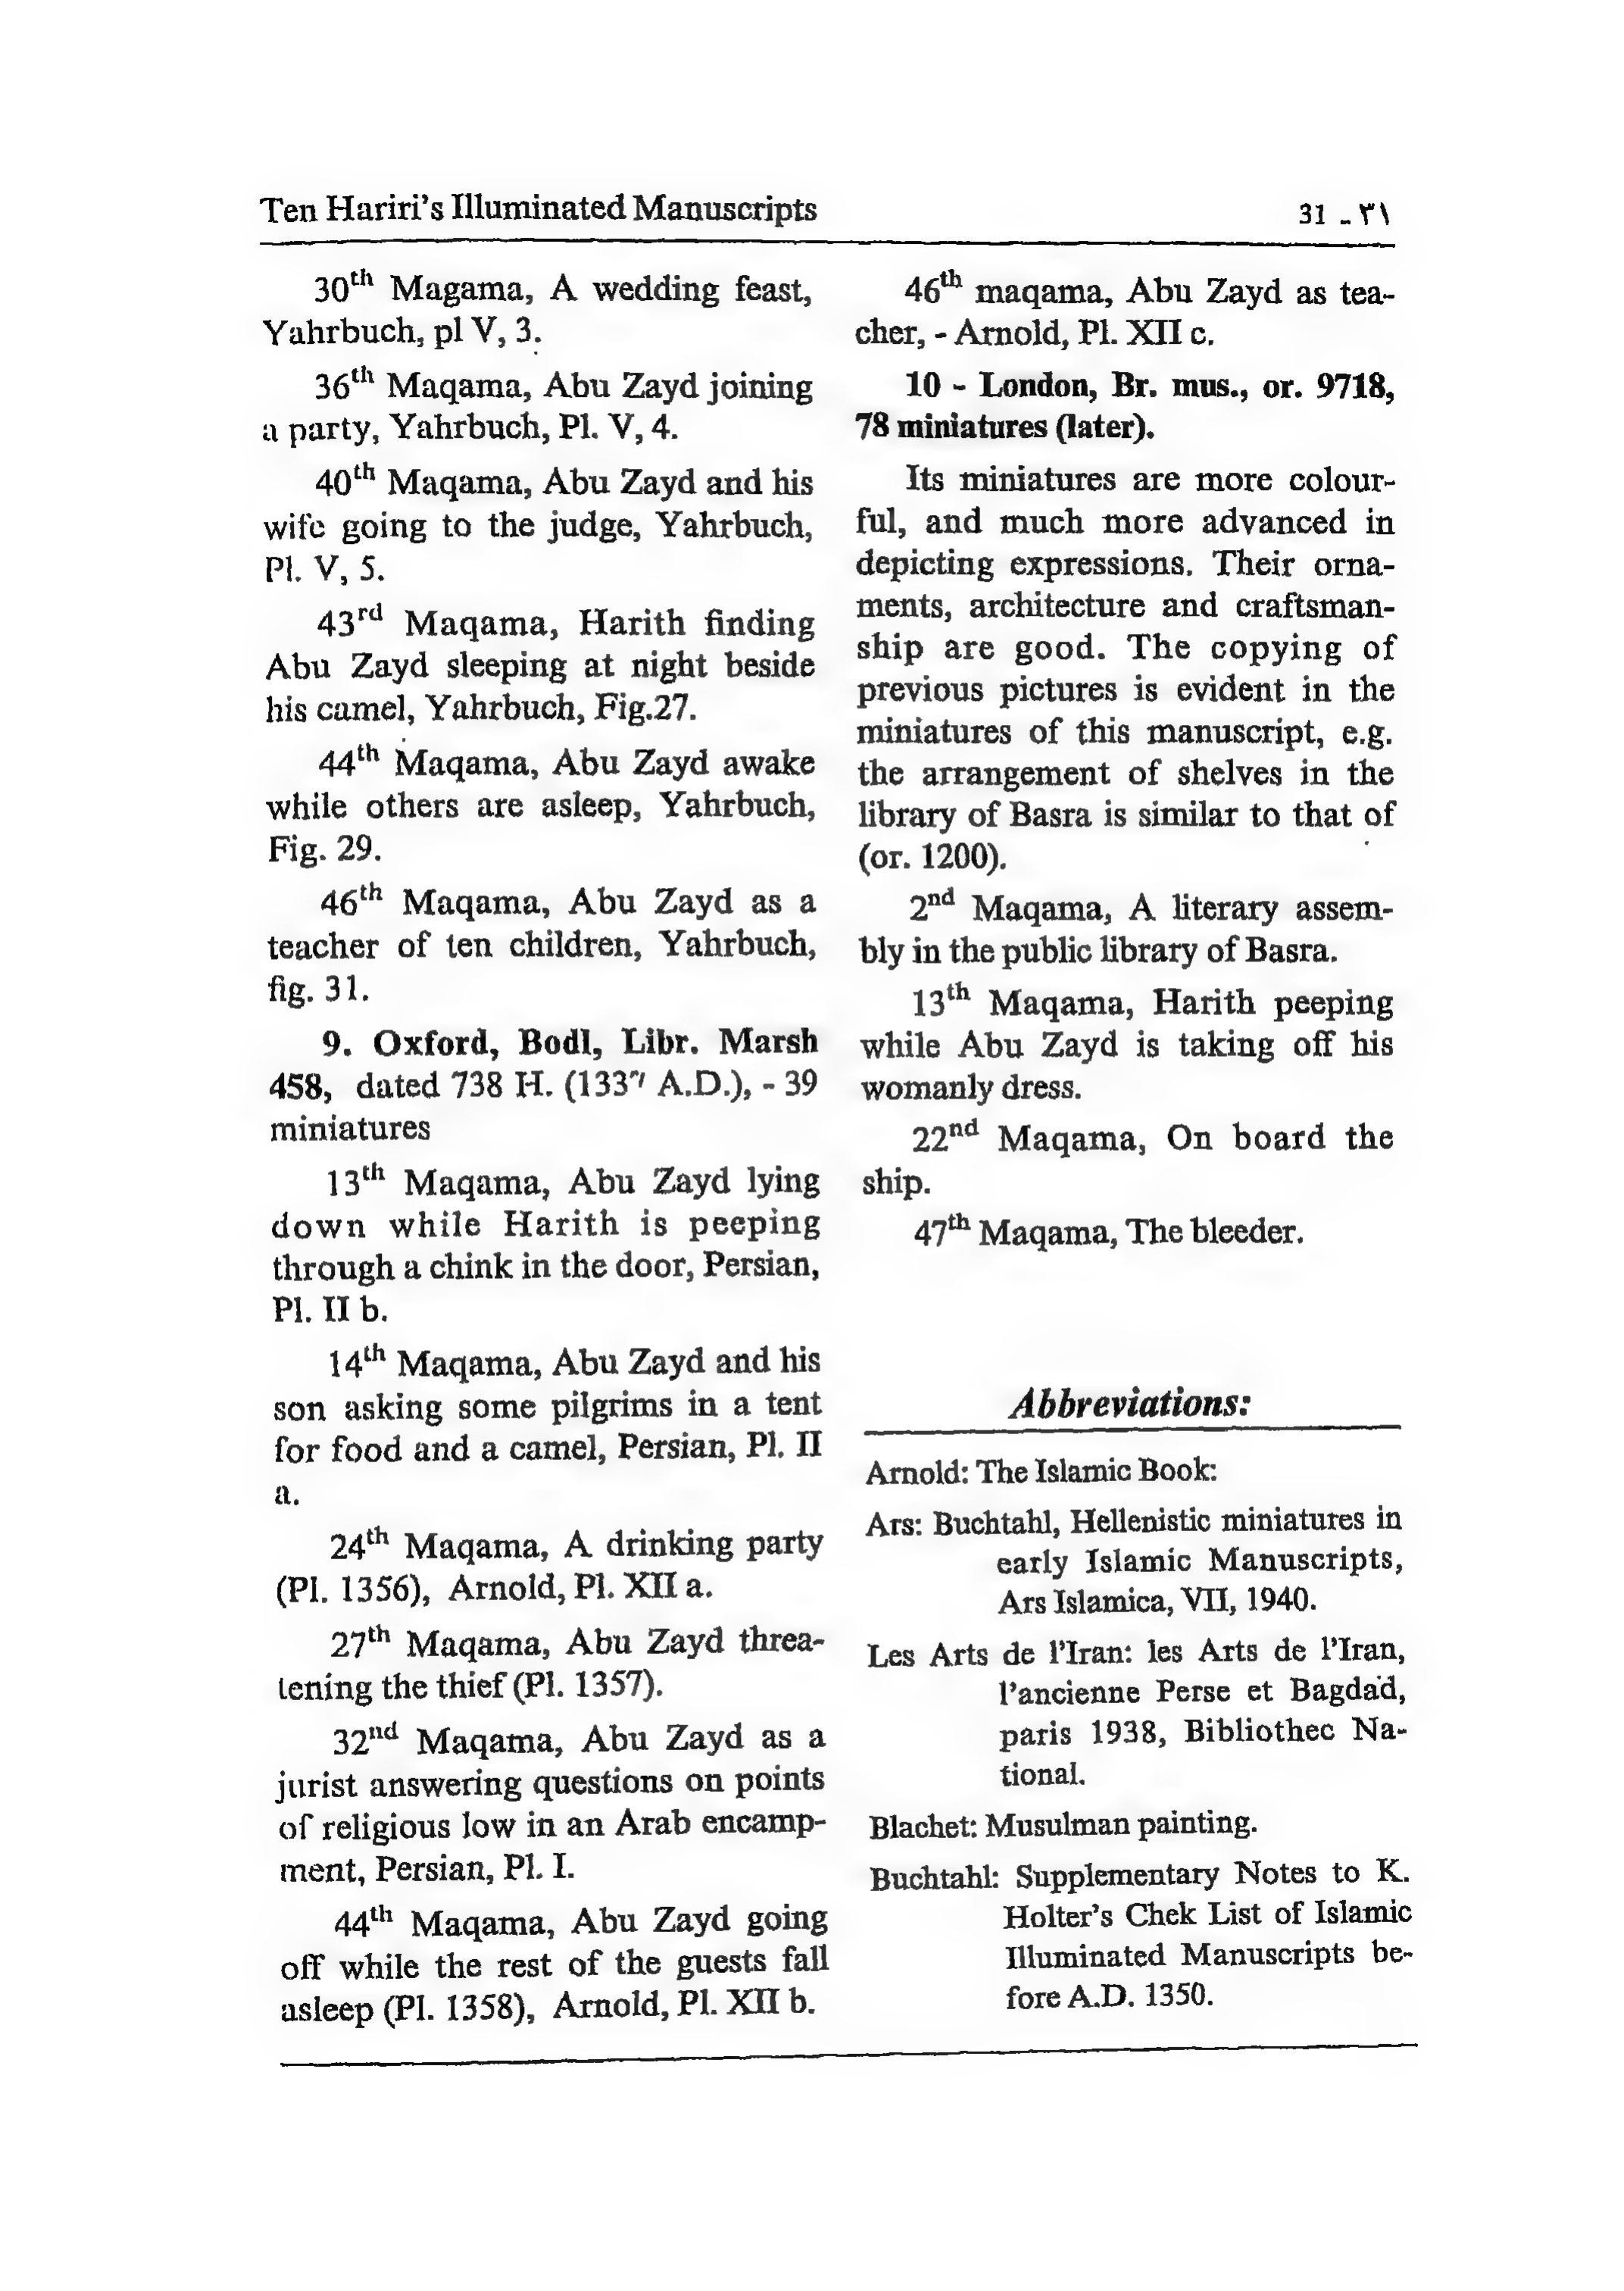 Ten Hariri's Illuminated Manuscripts
31 - ٣١
30th Magama, A wedding feast,
Yahrbuch, pl V, 3.
36th Maqama, Abu Zayd joining
a party, Yahrbuch, Pl. V, 4.
40th Maqama, Abu Zayd and his
wife going to the judge, Yahrbuch,
Pl. V, 5.
43rd Maqama, Harith finding
Abu Zayd sleeping at night beside
his camel, Yahrbuch, Fig.27.
44th Maqama, Abu Zayd awake
while others are asleep, Yahrbuch,
Fig. 29.
46th Maqama, Abu Zayd as a
teacher of ten children, Yahrbuch,
fig. 31.
9. Oxford, Bodl, Libr. Marsh
458, dated 738 H. (1337 A.D.), - 39
miniatures
13th Maqama, Abu Zayd lying
down while Harith is peeping
through a chink in the door, Persian,
Pl. II b.
14th Maqama, Abu Zayd and his
son asking some pilgrims in a tent
for food and a camel, Persian, Pl. II
a.
24th Maqama, A drinking party
(Pl. 1356), Arnold, Pl. XII a.
27th Maqama, Abu Zayd threa-
tening the thief (Pl. 1357).
32nd Maqama, Abu Zayd as a
jurist answering questions on points
of religious low in an Arab encamp-
ment, Persian, Pl. I.
44th Maqama, Abu Zayd going
off while the rest of the guests fall
asleep (Pl. 1358), Arnold, Pl. XII b.
46th maqama, Abu Zayd as tea-
cher, - Arnold, Pl. XII c.
10 - London, Br. mus., or. 9718,
78 miniatures (later).
Its miniatures are more colour-
ful, and much more advanced in
depicting expressions. Their orna-
ments, architecture and craftsman-
ship are good. The copying of
previous pictures is evident in the
miniatures of this manuscript, e.g.
the arrangement of shelves in the
library of Basra is similar to that of
(or. 1200).
2nd Maqama, A literary assem-
bly in the public library of Basra.
13th Maqama, Harith peeping
while Abu Zayd is taking off his
womanly dress.
22nd Maqama, On board the
ship.
47th Maqama, The bleeder.
Abbreviations:
Arnold: The Islamic Book:
Ars: Buchtahl, Hellenistic miniatures in
early Islamic Manuscripts,
Ars Islamica, VII, 1940.
Les Arts de l'Iran: les Arts de l'Iran,
l'ancienne Perse et Bagdad,
paris 1938, Bibliothec Na-
tional.
Blachet: Musulman painting.
Buchtahl: Supplementary Notes to K.
Holter's Chek List of Islamic
Illuminated Manuscripts be-
fore A.D. 1350.